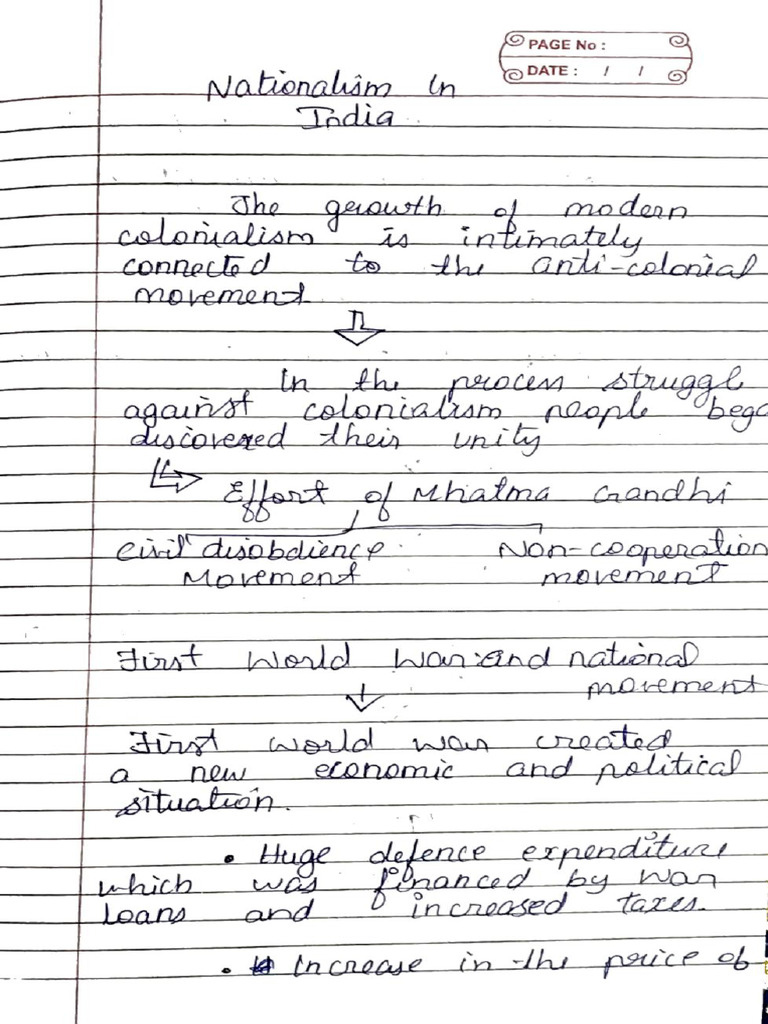 PAGE No :
DATE : / /
Nationalism In
India
The growth of modern
colonialism is intimately
connected to the anti-colonial
movement
In the process struggle
against colonialism people bega
discovered their unity
Effort of Mhatma Gandhi
civil disobdience Non-cooperation
Movement movement
First World War and national
movement
First world war created
a new economic and political
situation.
• Huge defence expenditure
which was financed by war
loans and increased taxes.
• Increase in the price of